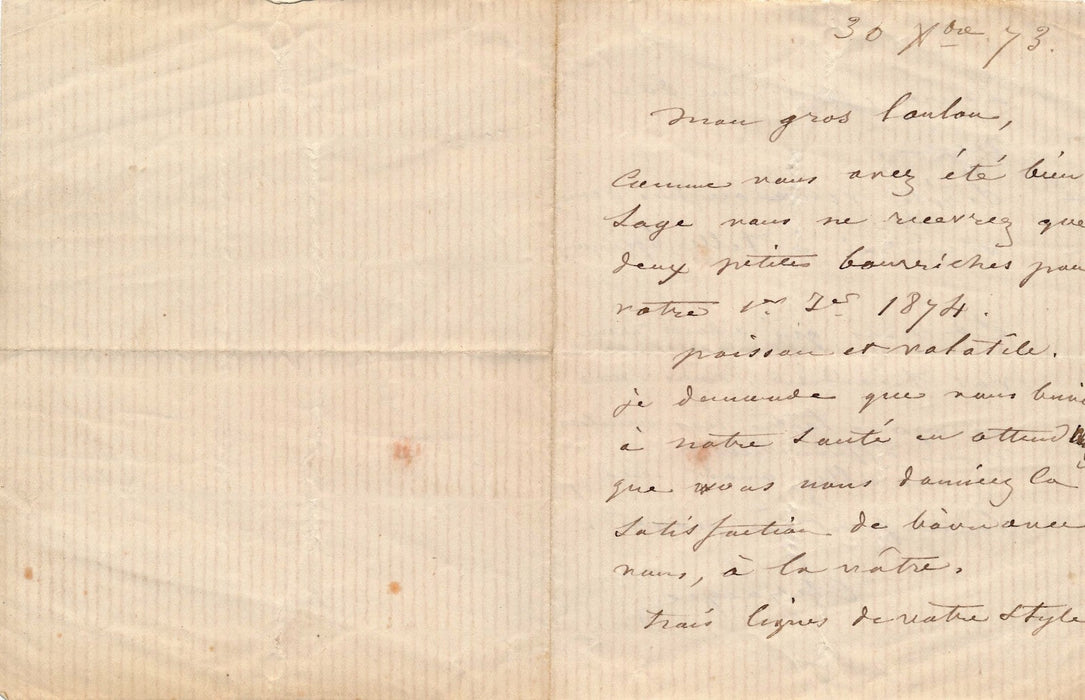 30 Xbre 73.
Mon gros loulou,
Comme vous avez été bien
sage vous ne recevrez que
deux petites bourriches pour
votre 1er Jer 1874.
poisson et volatile.
je demande que vous buvi
à notre santé en attend
que vous nous donniez la
satisfaction de boire avec
nous, à la vôtre.
trois lignes de votre style